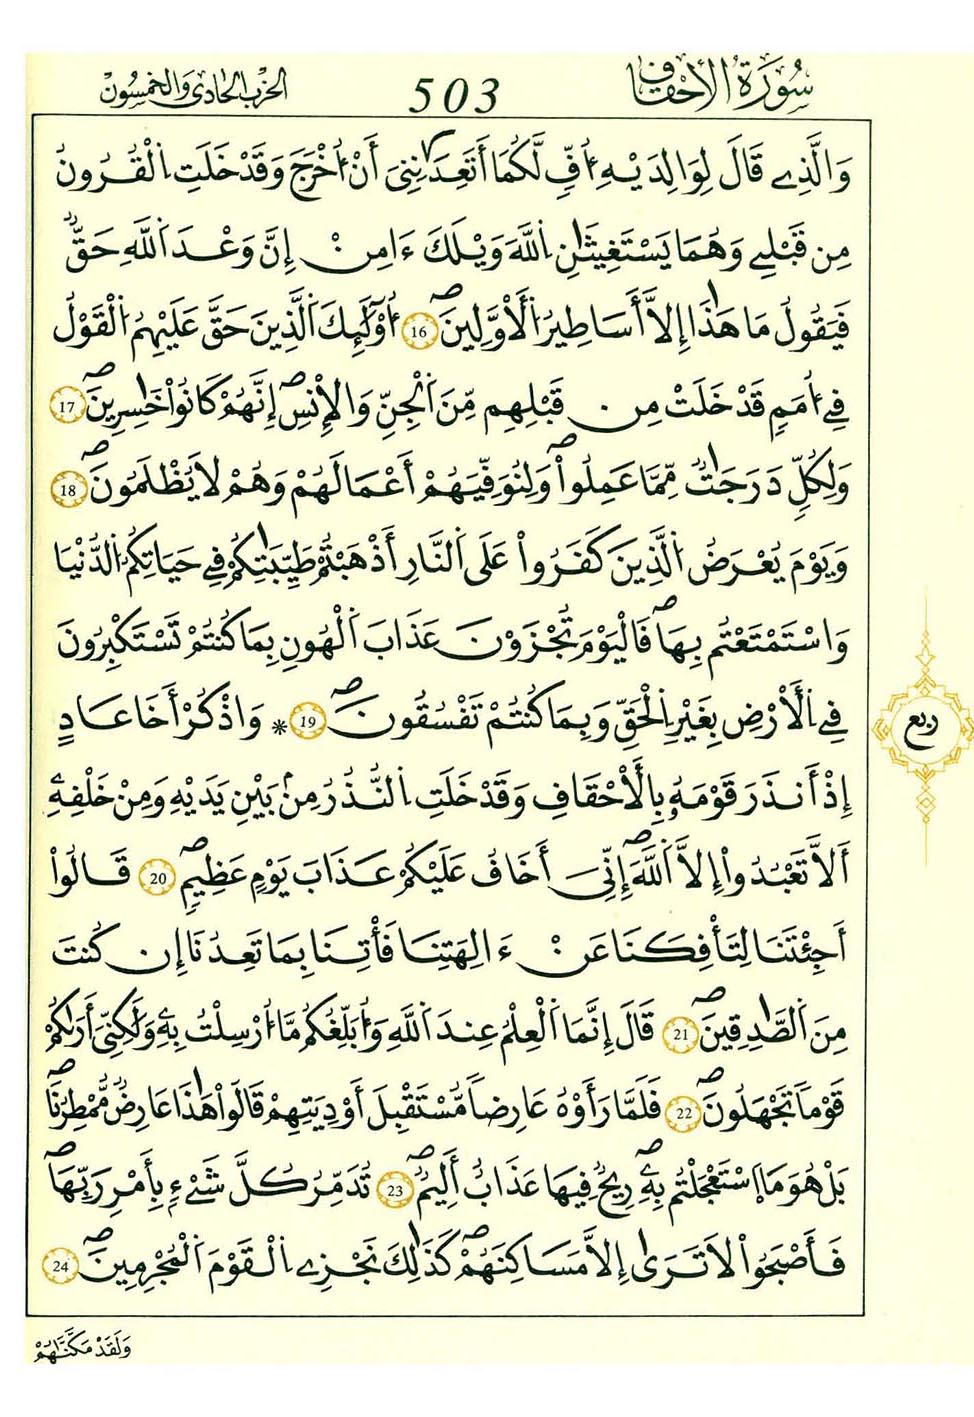 سُورَةُ الأَحْقَافِ
503
الحِزْبُ الحَادِي وَالخَمْسُونَ
وَالَّذِے قَالَ لِوَالِدَيْهِ أُفٍّ لَّكُمَا أَتَعِدَانِنِيَ أَنْ أُخْرَجَ وَقَدْ خَلَتِ اِلْقُرُونُ
مِن قَبْلِے وَهُمَا يَسْتَغِيثَٰنِ اِللَّهَ وَيْلَكَ ءَامِنْ إِنَّ وَعْدَ اَللَّهِ حَقٌّ
فَيَقُولُ مَا هَٰذَا إِلَّا أَسَاطِيرُ اُلْأَوَّلِينَ 16 أُوْلَٰٓئِكَ اَلَّذِينَ حَقَّ عَلَيْهِمُ اُلْقَوْلُ
فِے أُمَمٍ قَدْ خَلَتْ مِن قَبْلِهِم مِّنَ اَلْجِنِّ وَالْإِنسِ إِنَّهُمْ كَانُواْ خَٰسِرِينَ 17
وَلِكُلٍّ دَرَجَٰتٌ مِّمَّا عَمِلُواْ وَلِنُوَفِّيَهُمْ أَعْمَالَهُمْ وَهُمْ لَا يُظْلَمُونَ 18
وَيَوْمَ يُعْرَضُ اُلَّذِينَ كَفَرُواْ عَلَى اَلنَّارِ أَذْهَبْتُمْ طَيِّبَٰتِكُمْ فِے حَيَاتِكُمُ اُلدُّنْيَا
وَاسْتَمْتَعْتُم بِهَا فَالْيَوْمَ تُجْزَوْنَ عَذَابَ اَلْهُونِ بِمَا كُنتُمْ تَسْتَكْبِرُونَ
فِے اِلْأَرْضِ بِغَيْرِ اِلْحَقِّ وَبِمَا كُنتُمْ تَفْسُقُونَ 19 * وَاذْكُرْ أَخَا عَادٍ
إِذْ أَنذَرَ قَوْمَهُۥ بِالْأَحْقَافِ وَقَدْ خَلَتِ اِلنُّذُرُ مِنۢ بَيْنِ يَدَيْهِ وَمِنْ خَلْفِهِۦ
أَلَّا تَعْبُدُواْ إِلَّا اَللَّهَ إِنِّيَ أَخَافُ عَلَيْكُمْ عَذَابَ يَوْمٍ عَظِيمٍ 20 قَالُواْ
أَجِئْتَنَا لِتَأْفِكَنَا عَنْ ءَالِهَتِنَا فَأْتِنَا بِمَا تَعِدُنَا إِن كُنتَ
مِنَ اَلصَّٰدِقِينَ 21 قَالَ إِنَّمَا اَلْعِلْمُ عِندَ اَللَّهِ وَأُبَلِّغُكُم مَّا أُرْسِلْتُ بِهِۦ وَلَٰكِنِّيَ أَرَىٰكُمْ
قَوْماً تَجْهَلُونَ 22 فَلَمَّا رَأَوْهُ عَارِضاً مُّسْتَقْبِلَ أَوْدِيَتِهِمْ قَالُواْ هَٰذَا عَارِضٌ مُّمْطِرُنَا
بَلْ هُوَ مَا اَسْتَعْجَلْتُم بِهِۦ رِيحٌ فِيهَا عَذَابٌ أَلِيمٌ 23 تُدَمِّرُ كُلَّ شَےْءٍ بِأَمْرِ رَبِّهَا
فَأَصْبَحُواْ لَا تَرَىٰ إِلَّا مَسَاكِنَهُمْ كَذَٰلِكَ نَجْزِے اِلْقَوْمَ اَلْمُجْرِمِينَ 24
ربع
وَلَقَدْ مَكَّنَّٰهُمْ